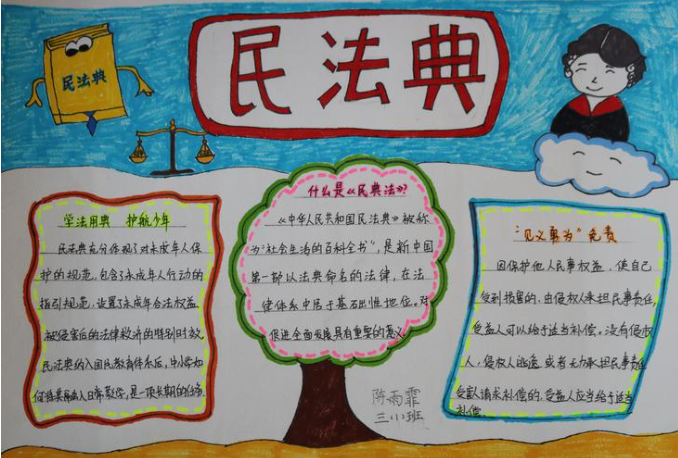 民法典
民法典
学法用典 护航少年
民法典充分体现了对未成年人保
护的规范，包含了未成年人行动的
指引规范，设置了未成年合法权益
被侵害后的法律救济的特别时效
民法典纳入国民教育体系后，中小学如
何将其融入日常教学，是一项长期的任务.
什么是《民典法》?
《中华人民共和国民法典》被称
为"社会生活的百科全书"，是新中国
第一部以法典命名的法律，在法
律体系中居于基础性地位。对
促进全面发展具有重要的意义
"见义勇为"免责
因保护他人民事权益，使自己
受到损害的，由侵权人承担民事责任，
受益人可以给予适当补偿。没有侵权
人，侵权人逃逸 或者无力承担民事责任
受 请求补偿的，受益人应当给予适当
补偿
陈雨霏
三(1)班